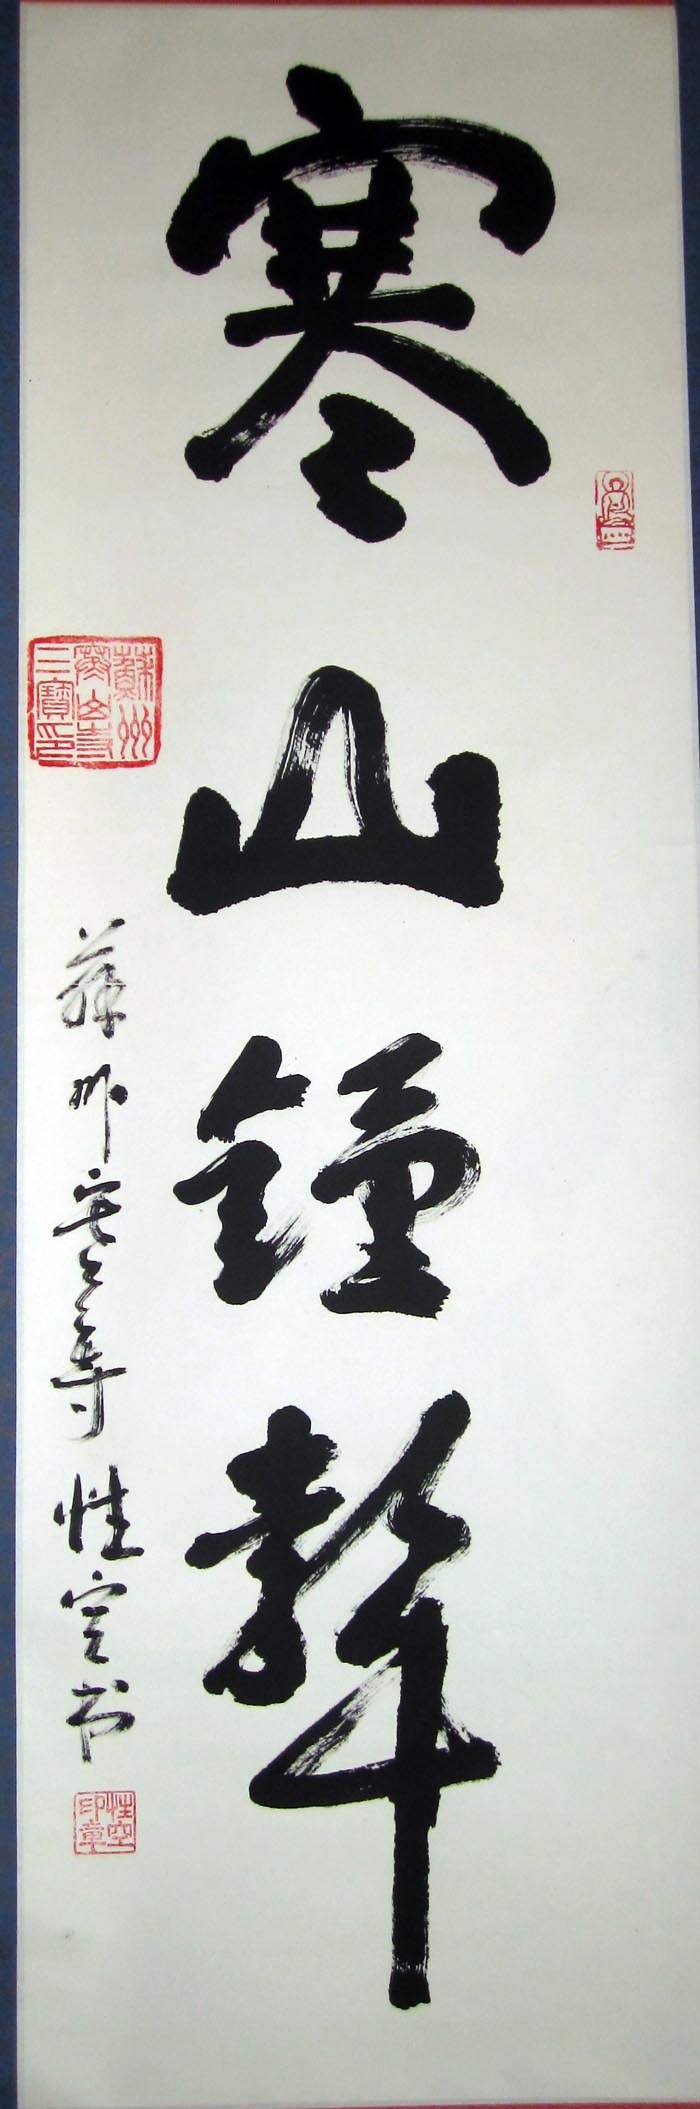 寒山鐘聲
蘇州寒山寺
三寶印
蘇州寒山寺 性空书
性空
印章